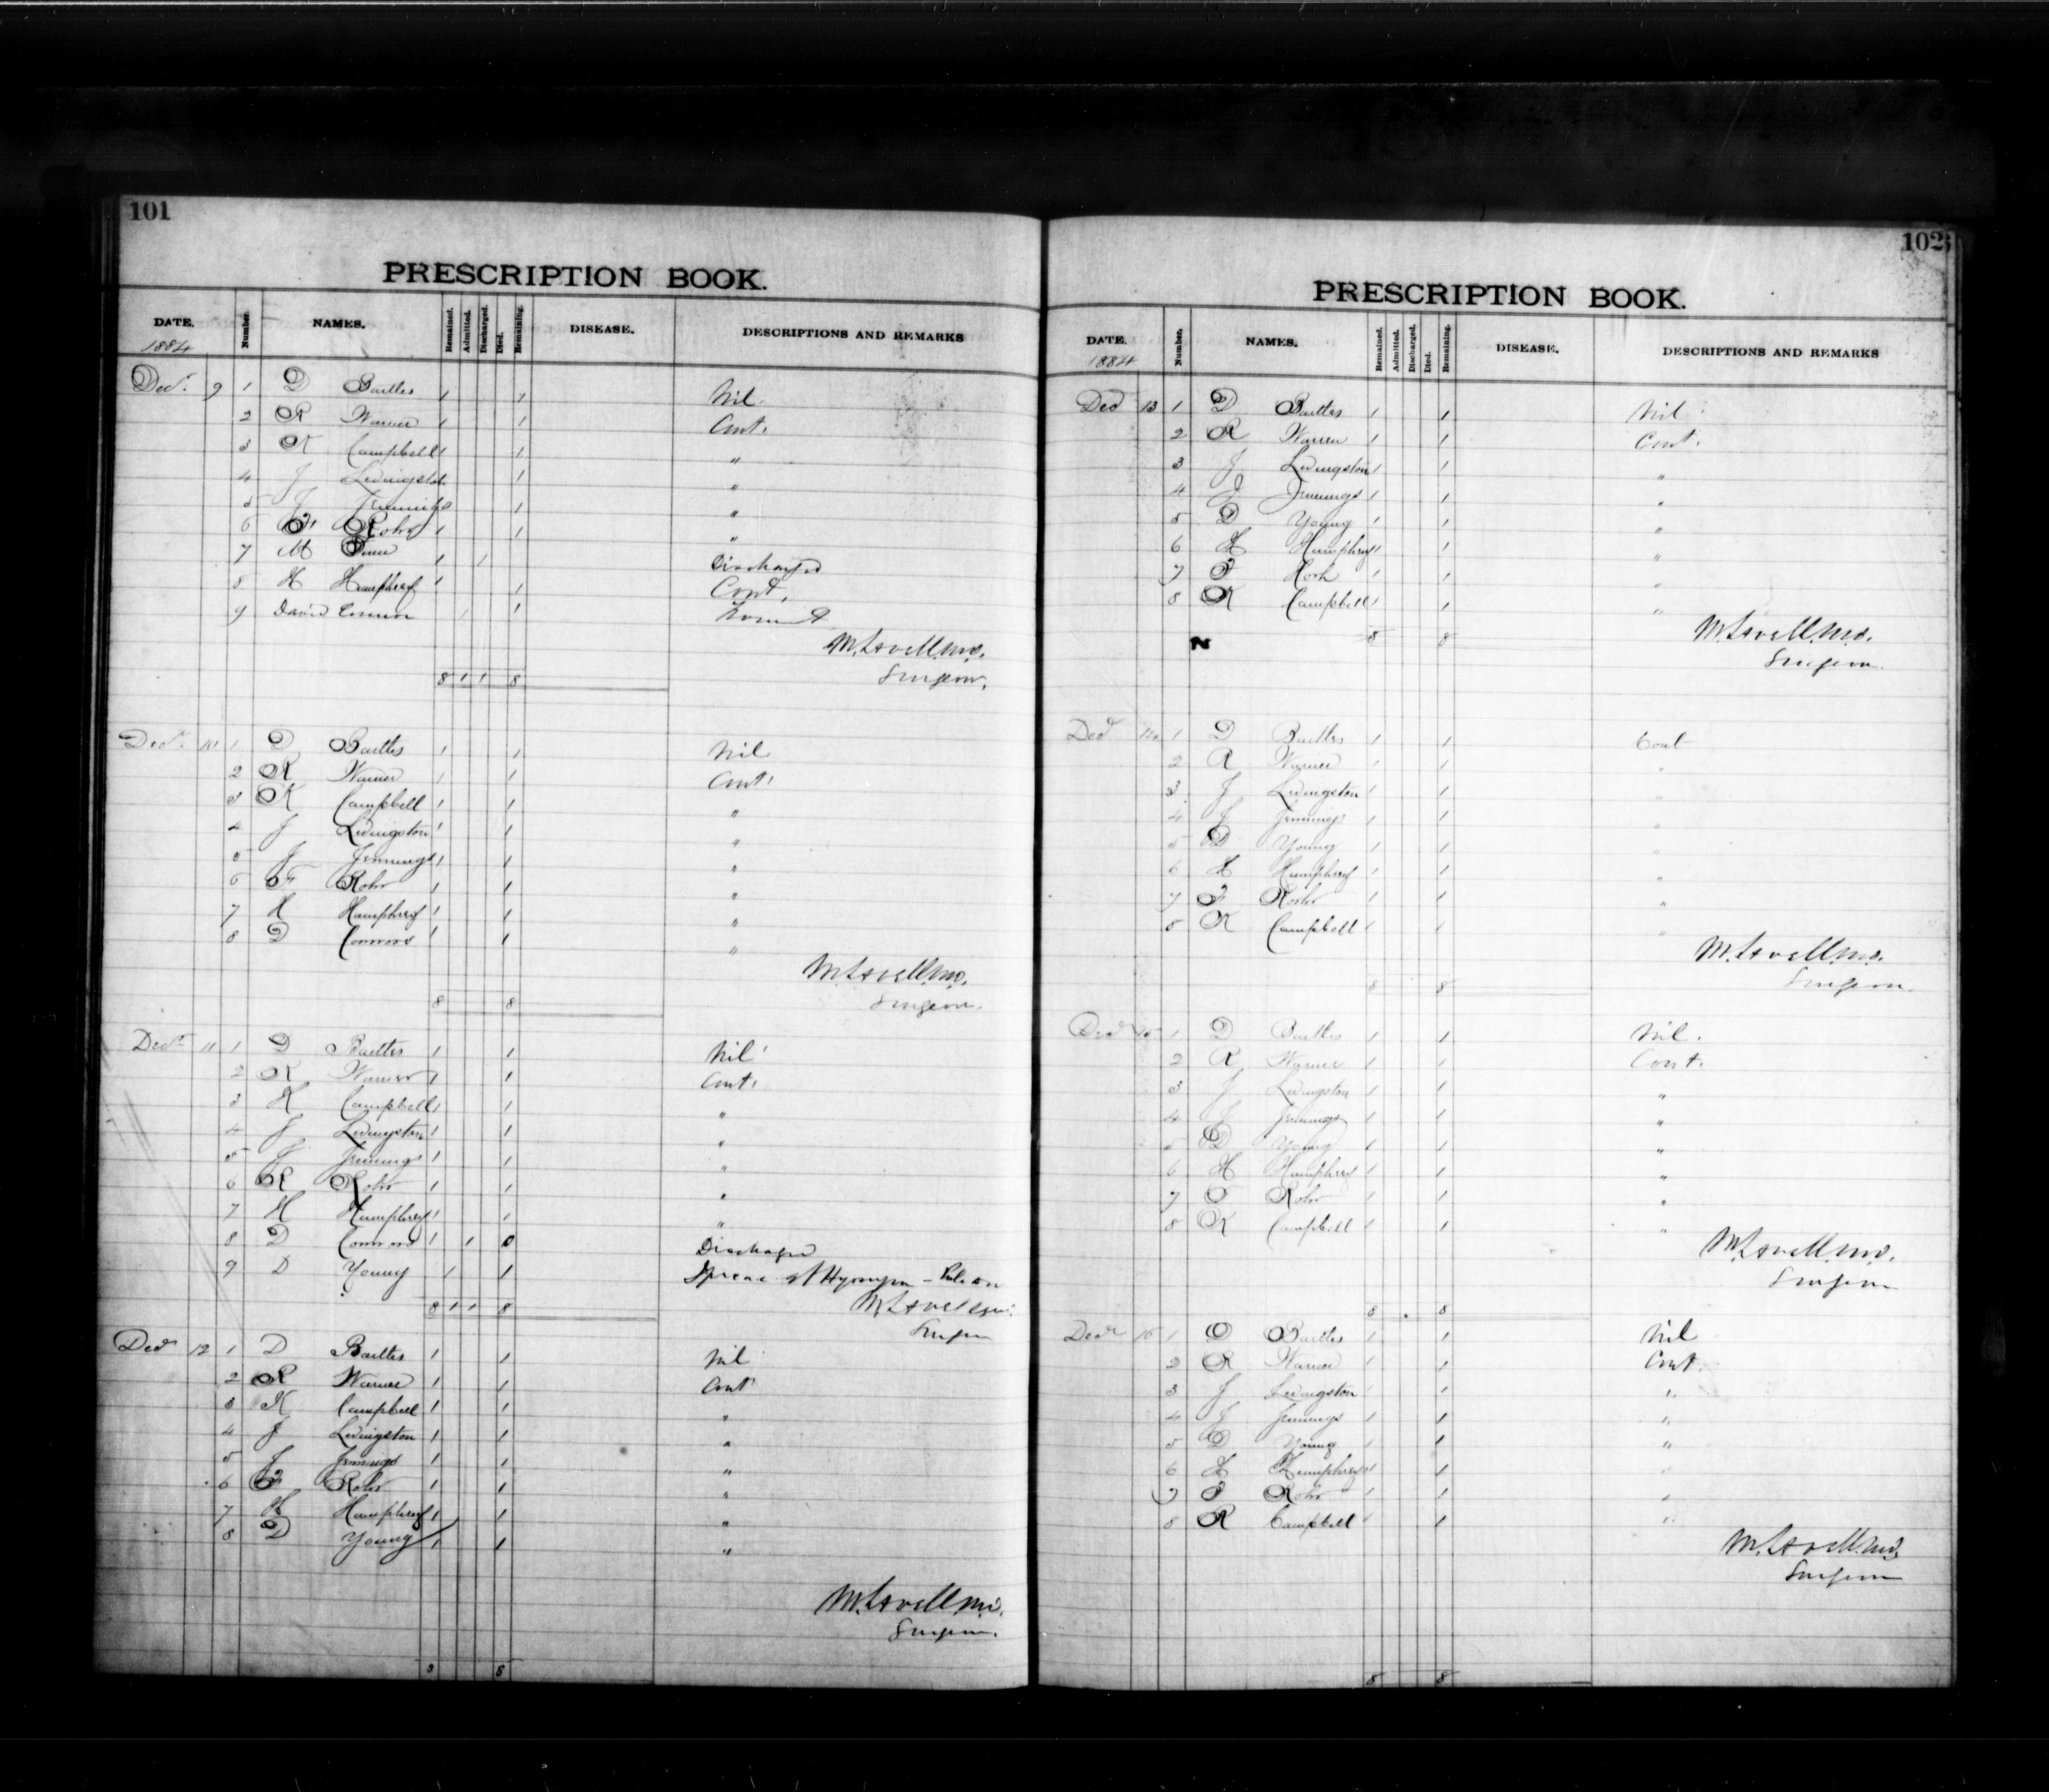 101
PRESCRIPTION BOOK.
DATE. Number. NAMES. Remained. Admitted. Discharged. Died. Remaining. DISEASE. DESCRIPTIONS AND REMARKS
1884
Decr. 9 1 D Bartles 1 1 Nil
2 R Warner 1 1 Cont.
3 K Campbell 1 1 "
4 J Livingston 1 "
5 J Jennings 1 "
6 F. Rohr 1 1 "
7 M 1 1 Discharged
8 H Humphrey 1 1 Cont.
9 David 1 1
M. Lavell M.D.
8 1 1 8 Surgeon.
Decr. 10 1 D Bartles 1 1 Nil
2 R Warner 1 1 Cont.
3 K Campbell 1 1 "
4 J Livingston 1 1 "
5 J Jennings 1 1 "
6 F Rohr 1 1 "
7 H Humphrey 1 1 "
8 D Connors 1 1 "
M. Lavell M.D.
8 8 Surgeon.
Decr 11 1 D Bartles 1 1 Nil
2 R Warner 1 1 Cont.
3 K Campbell 1 1 "
4 J Livingston 1 1 "
5 J Jennings 1 1 "
6 R Rohr 1 1 "
7 H Humphrey 1 1 "
8 D Connors 1 1 0 Discharged
9 D Young 1 1
8 1 1 8 M. Lavell
Surgeon
Decr 12 1 D Bartles 1 1 Nil
2 R Warner 1 1 Cont
3 K Campbell 1 1 "
4 J Livingston 1 1 "
5 J Jennings 1 1 "
6 F Rohr 1 1 "
7 H Humphrey 1 1 "
8 D Young 1 1 "
M. Lavell M.D.
Surgeon.
8 8
102
PRESCRIPTION BOOK.
DATE. Number. NAMES. Remained. Admitted. Discharged. Died. Remaining. DISEASE. DESCRIPTIONS AND REMARKS
1884
Decr 13 1 D Bartles 1 1 Nil
2 R Warren 1 1 Cont.
3 J Livingston 1 1 "
4 J Jennings 1 1 "
5 D Young 1 1 "
6 H Humphrey 1 1 "
7 F 1 1 "
8 K Campbell 1 1 "
8 8 M. Lavell M.D.
Surgeon.
Decr 14 1 D Bartles 1 1 Cont
2 R Warner 1 1 "
3 J Livingston 1 1 "
4 J Jennings 1 1 "
5 D Young 1 1 "
6 H Humphrey 1 1 "
7 F Rohr 1 1 "
8 K Campbell 1 1 "
M. Lavell M.D.
8 8 Surgeon
Decr 15 1 D Bartles 1 1 Nil.
2 R Warner 1 1 Cont.
3 J Livingston 1 1 "
4 J Jennings 1 1 "
5 D Young 1 1 "
6 H Humphrey 1 1 "
7 F Rohr 1 1 "
8 K Campbell 1 1 "
M. Lavell M.D.
Surgeon
8 8
Decr 16 1 D Bartles 1 1 Nil
2 R Warner 1 1 Cont.
3 J Livingston 1 1 "
4 J Jennings 1 1 "
5 D Young 1 1 "
6 H Humphrey 1 1 "
7 F Rohr 1 1 "
8 K Campbell 1 1 "
M. Lavell M.D.
Surgeon
8 8